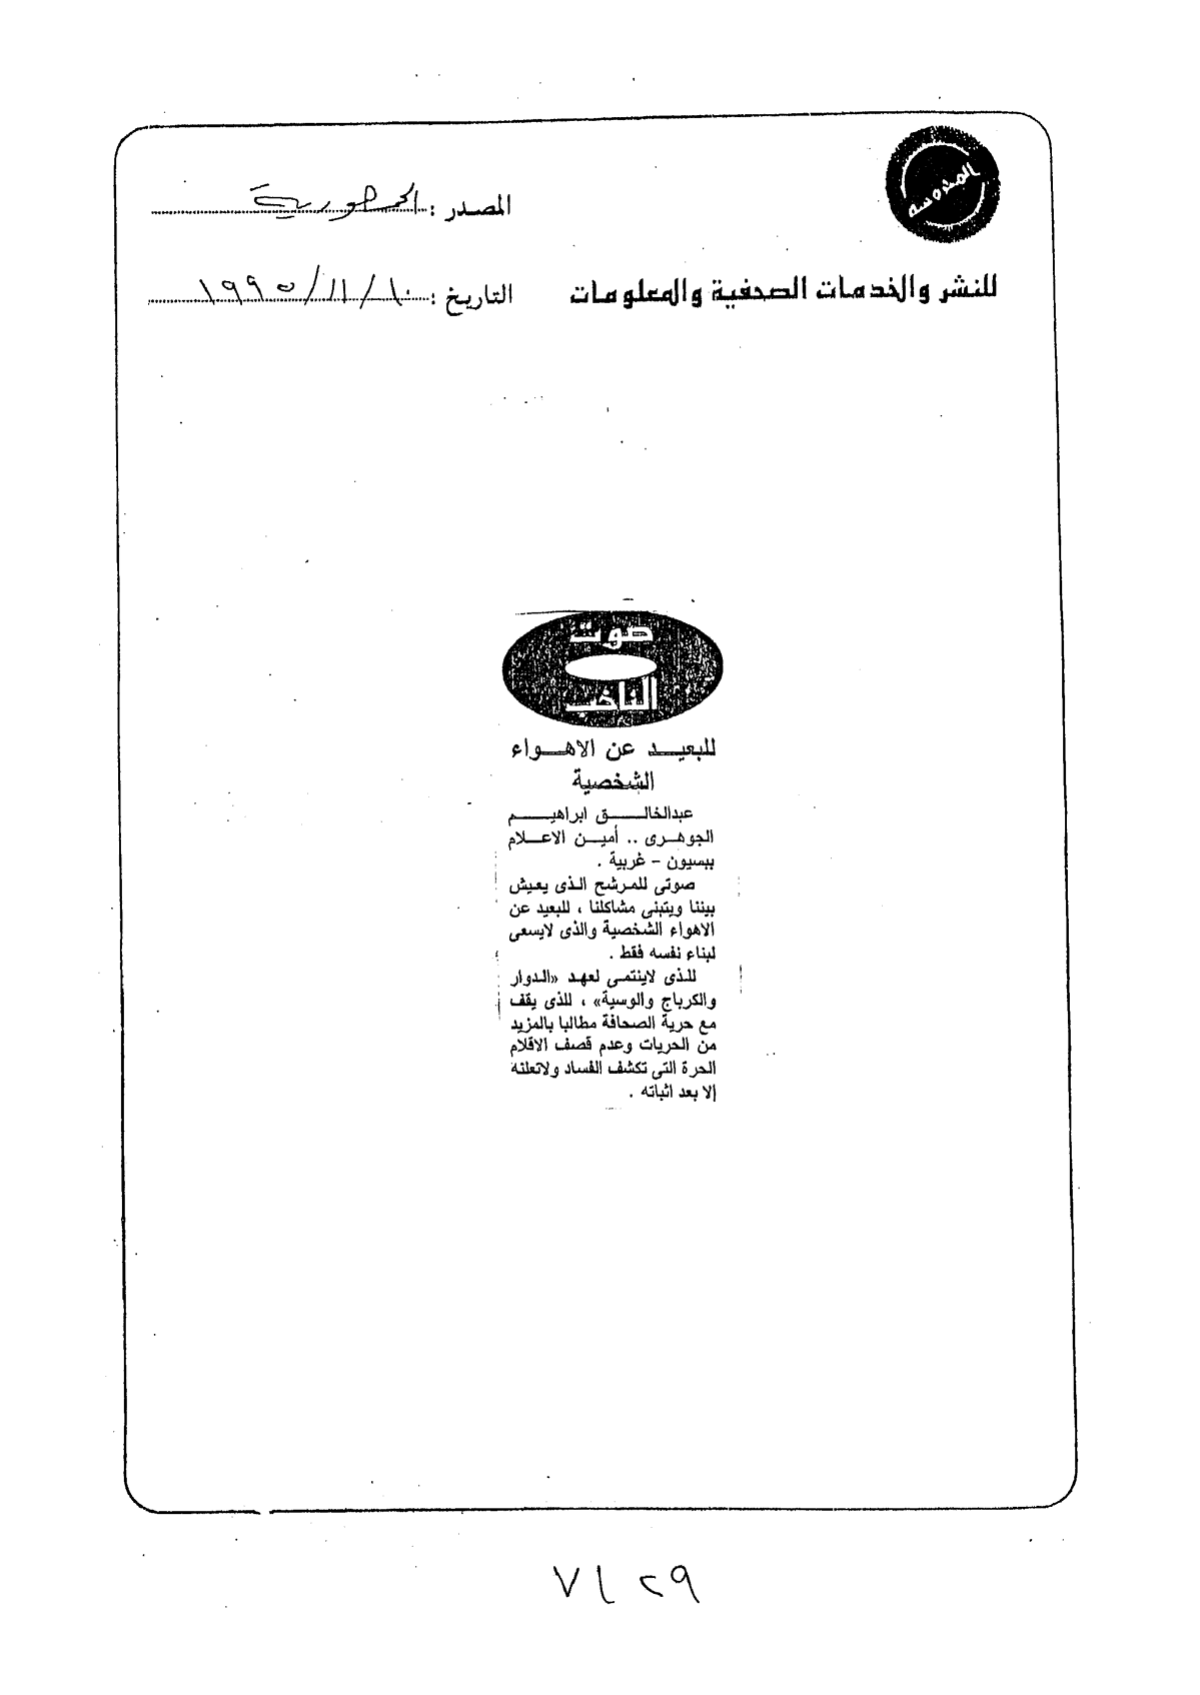 المحروسة
المصدر : الجمهورية
للنشر والخدمات الصحفية والمعلومات
التاريخ : ١٠/١١/١٩٩٥
صوت
الناخب
للبعيد عن الاهواء
الشخصية
عبدالخالق ابراهيم
الجوهرى .. أمين الاعلام
ببسيون - غربية .
صوتى للمرشح الذى يعيش
بيننا ويتبنى مشاكلنا ، للبعيد عن
الاهواء الشخصية والذى لايسعى
لبناء نفسه فقط .
للذى لاينتمى لعهد «الدوار
والكرباج والوسية» ، للذى يقف
مع حرية الصحافة مطالبا بالمزيد
من الحريات وعدم قصف الاقلام
الحرة التى تكشف الفساد ولاتعلنه
إلا بعد اثباته .